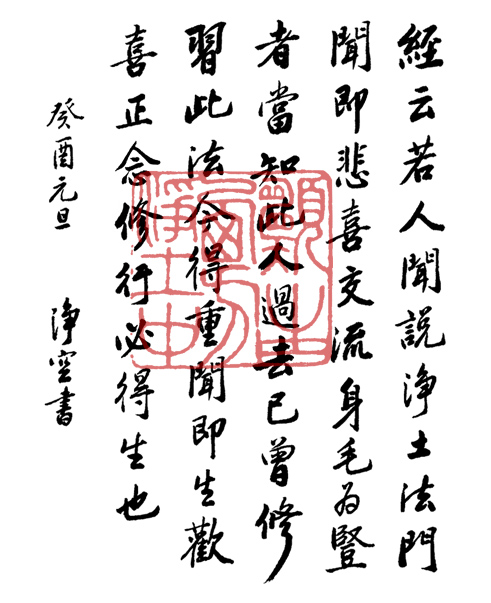 經云若人聞說淨土法門
聞即悲喜交流身毛為豎
者當知此人過去已曾修
習此法今得重聞即生歡
喜正念修行必得生也
癸酉元旦 淨空書
願生
西方
淨土中